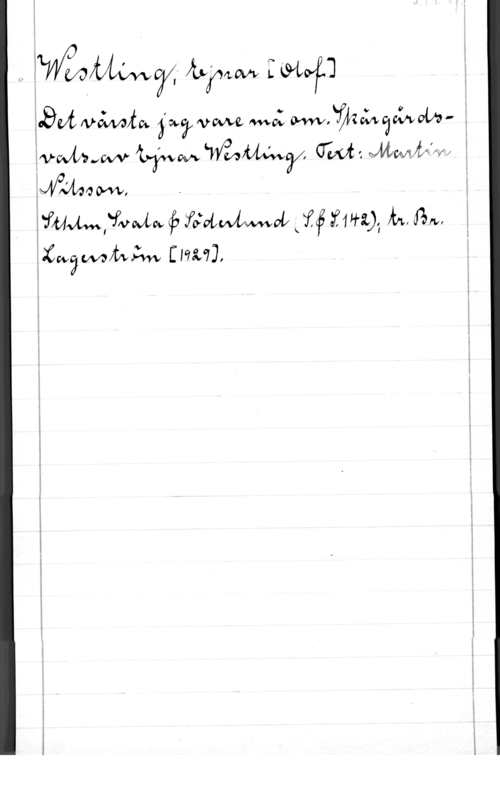 Westling, Ejnar [Olof]
Det värsta jag vare må om. Skärgårds-
vals av Ejnar Westling. Text: Martin
Nilsson.
Sthlm, Svala & Söderlund (S. & S. 142), tr. Br.
Lagerström [1929].